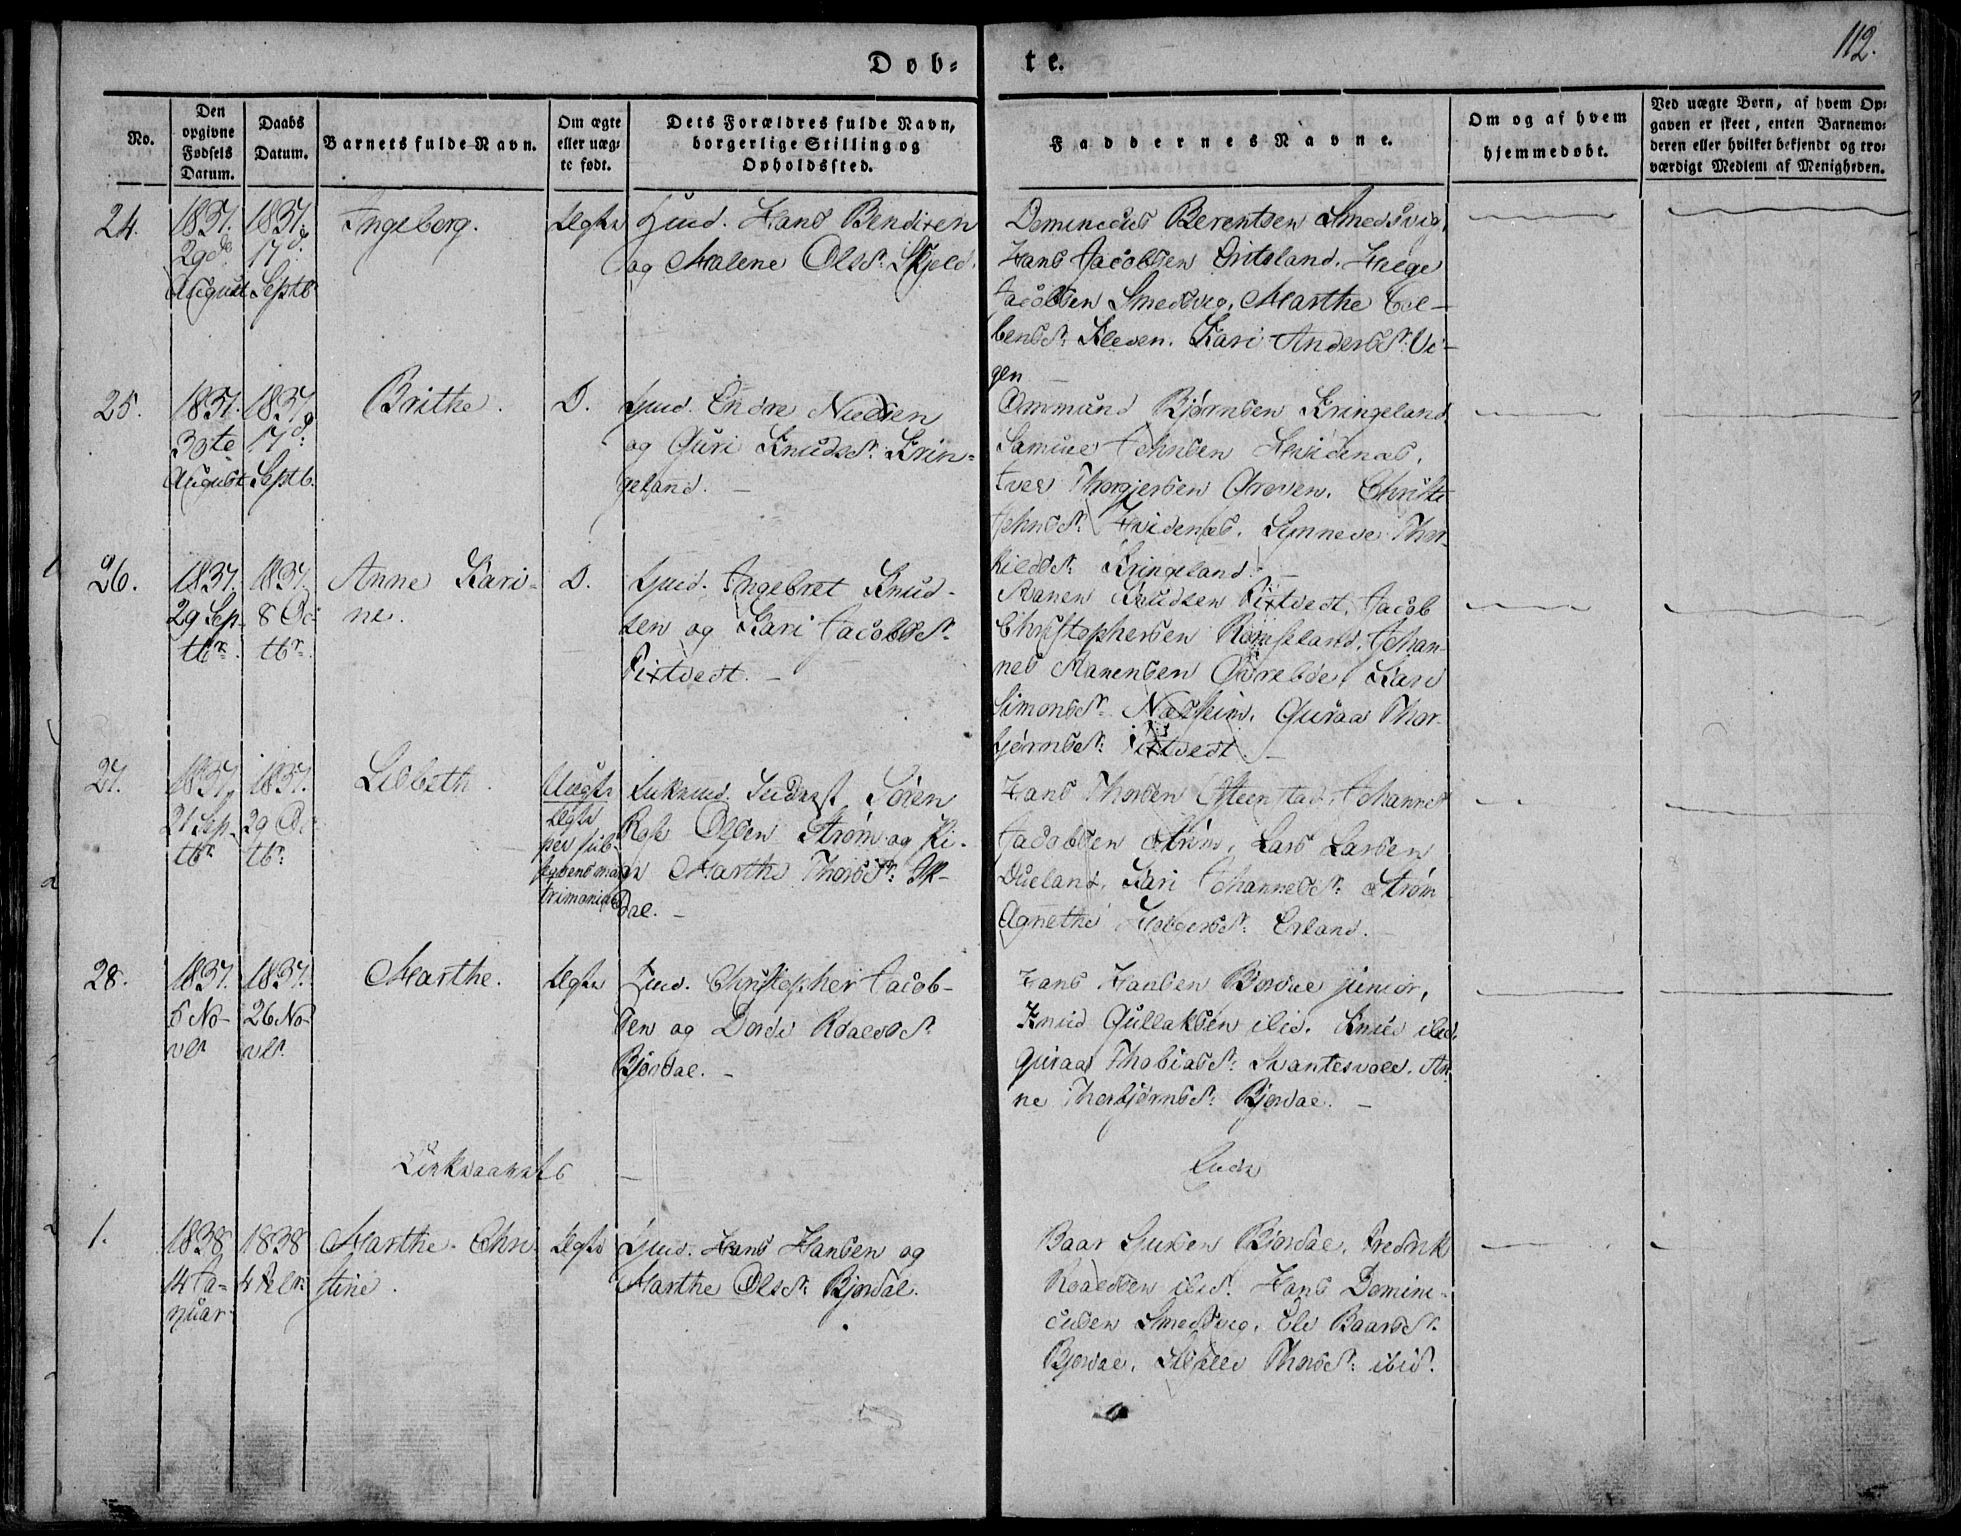 112.
Døb-
te.
No.
Den opgivne Fødsels Datum.
Daabs Datum.
Barnets fulde Navn.
Om ægte eller uægte født.
Dets Forældres fulde Navn, borgerlige Stilling og Opholdssted.
Faddernes Navne.
Om og af hvem hjemmedøbt.
Ved uægte Børn, af hvem Opgaven er skeet, enten Barnemoderen eller hvilket bekjendt og troværdigt Medlem af Menigheden.
24.
1837.
29de
August
1837.
17de
Septb.
Ingeborg.
Ægte
Gmd. Hans Bendixen
og Malene Olsdr. Skjold.
Dominicus Berentsen Smedsvig,
Hans Jacobsen Hælge
Jacobsen Smedsvig, Marthe Col-
bensdr. Kleven. Kari Andersdr. Vi-
gen
25.
1837.
30te
August
1837.
17de
Septb.
Brithe.
D.
Gmd. Endre Nielsen
og Guri Knudsdr. Krin-
geland. —
Ommund Bjørnsen Kringeland.
Samuel Johnsen Hvidenæs.
Iver Christi
Johnsdr. Hvidenæs. Synneve Thor-
kildsdr. Kringeland. —
26.
1837.
29 Sep-
tbr.
1837.
8 Oc-
tbr.
Anne Kari-
ne.
D.
Gmd. Ingebret Knud-
sen og Kari Jacobsdr.
Tixtvedt. —
Manen Knudsen Tixtvedt, Jacob
Christophersen Johan-
nes Manensen Kari
Simonsdr. Næsheim. Guraa Thor-
bjørnsdr. Tixtvedt. —
27.
1837.
21 Sep-
tbr.
1837.
29 Oc-
tbr.
Lisbeth.
Uægte
Ægte
per sub-
seqvens ma-
trimonium
Søren
Olsen Strøm og Pi-
ge Marthe Thorsdr.
dal. —
Hans Thorsen Johannes
Jacobsen Strøm, Lars Larsen
Dueland, Kari Johannesdr. Strøm
Agnethe Erland.
28.
1837.
5 No-
vbr.
1837.
26 No-
vbr.
Marthe.
Ægte
Gmd. Christopher Jacob-
sen og Dorde Roaldsdr.
Bjordal. —
Hans Hansen Bjordal junior,
Knud Gullaksen ibid. Knud ibid.
Guraa Thobiasdr. Svantesvold. An-
ne Thorbjørnsdr. Bjordal. —
1.
1838
14 Ja-
nuar
1838
4 Febr.
Marthe Chri-
stine.
Ægte
Gmd. Hans Hansen og
Marthe Olsdr. Bjordal.
Baar Bjordal, Fredrik
Roaldsen ibid. Hans Domini-
cusen Smedsvig, Eli Baarsdr.
Bjordal, Thorsdr. ibid.